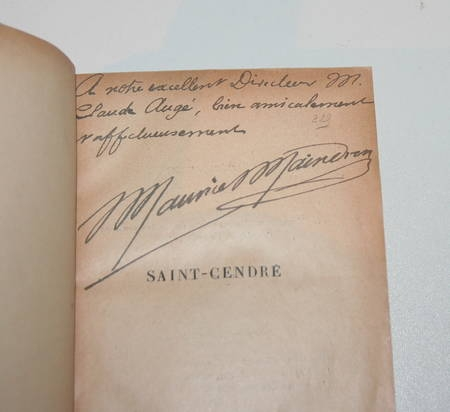 A notre excellent Directeur M.
Claude Augé, bien amicalement
& affectueusement
Maurice Maindron
SAINT-CENDRE